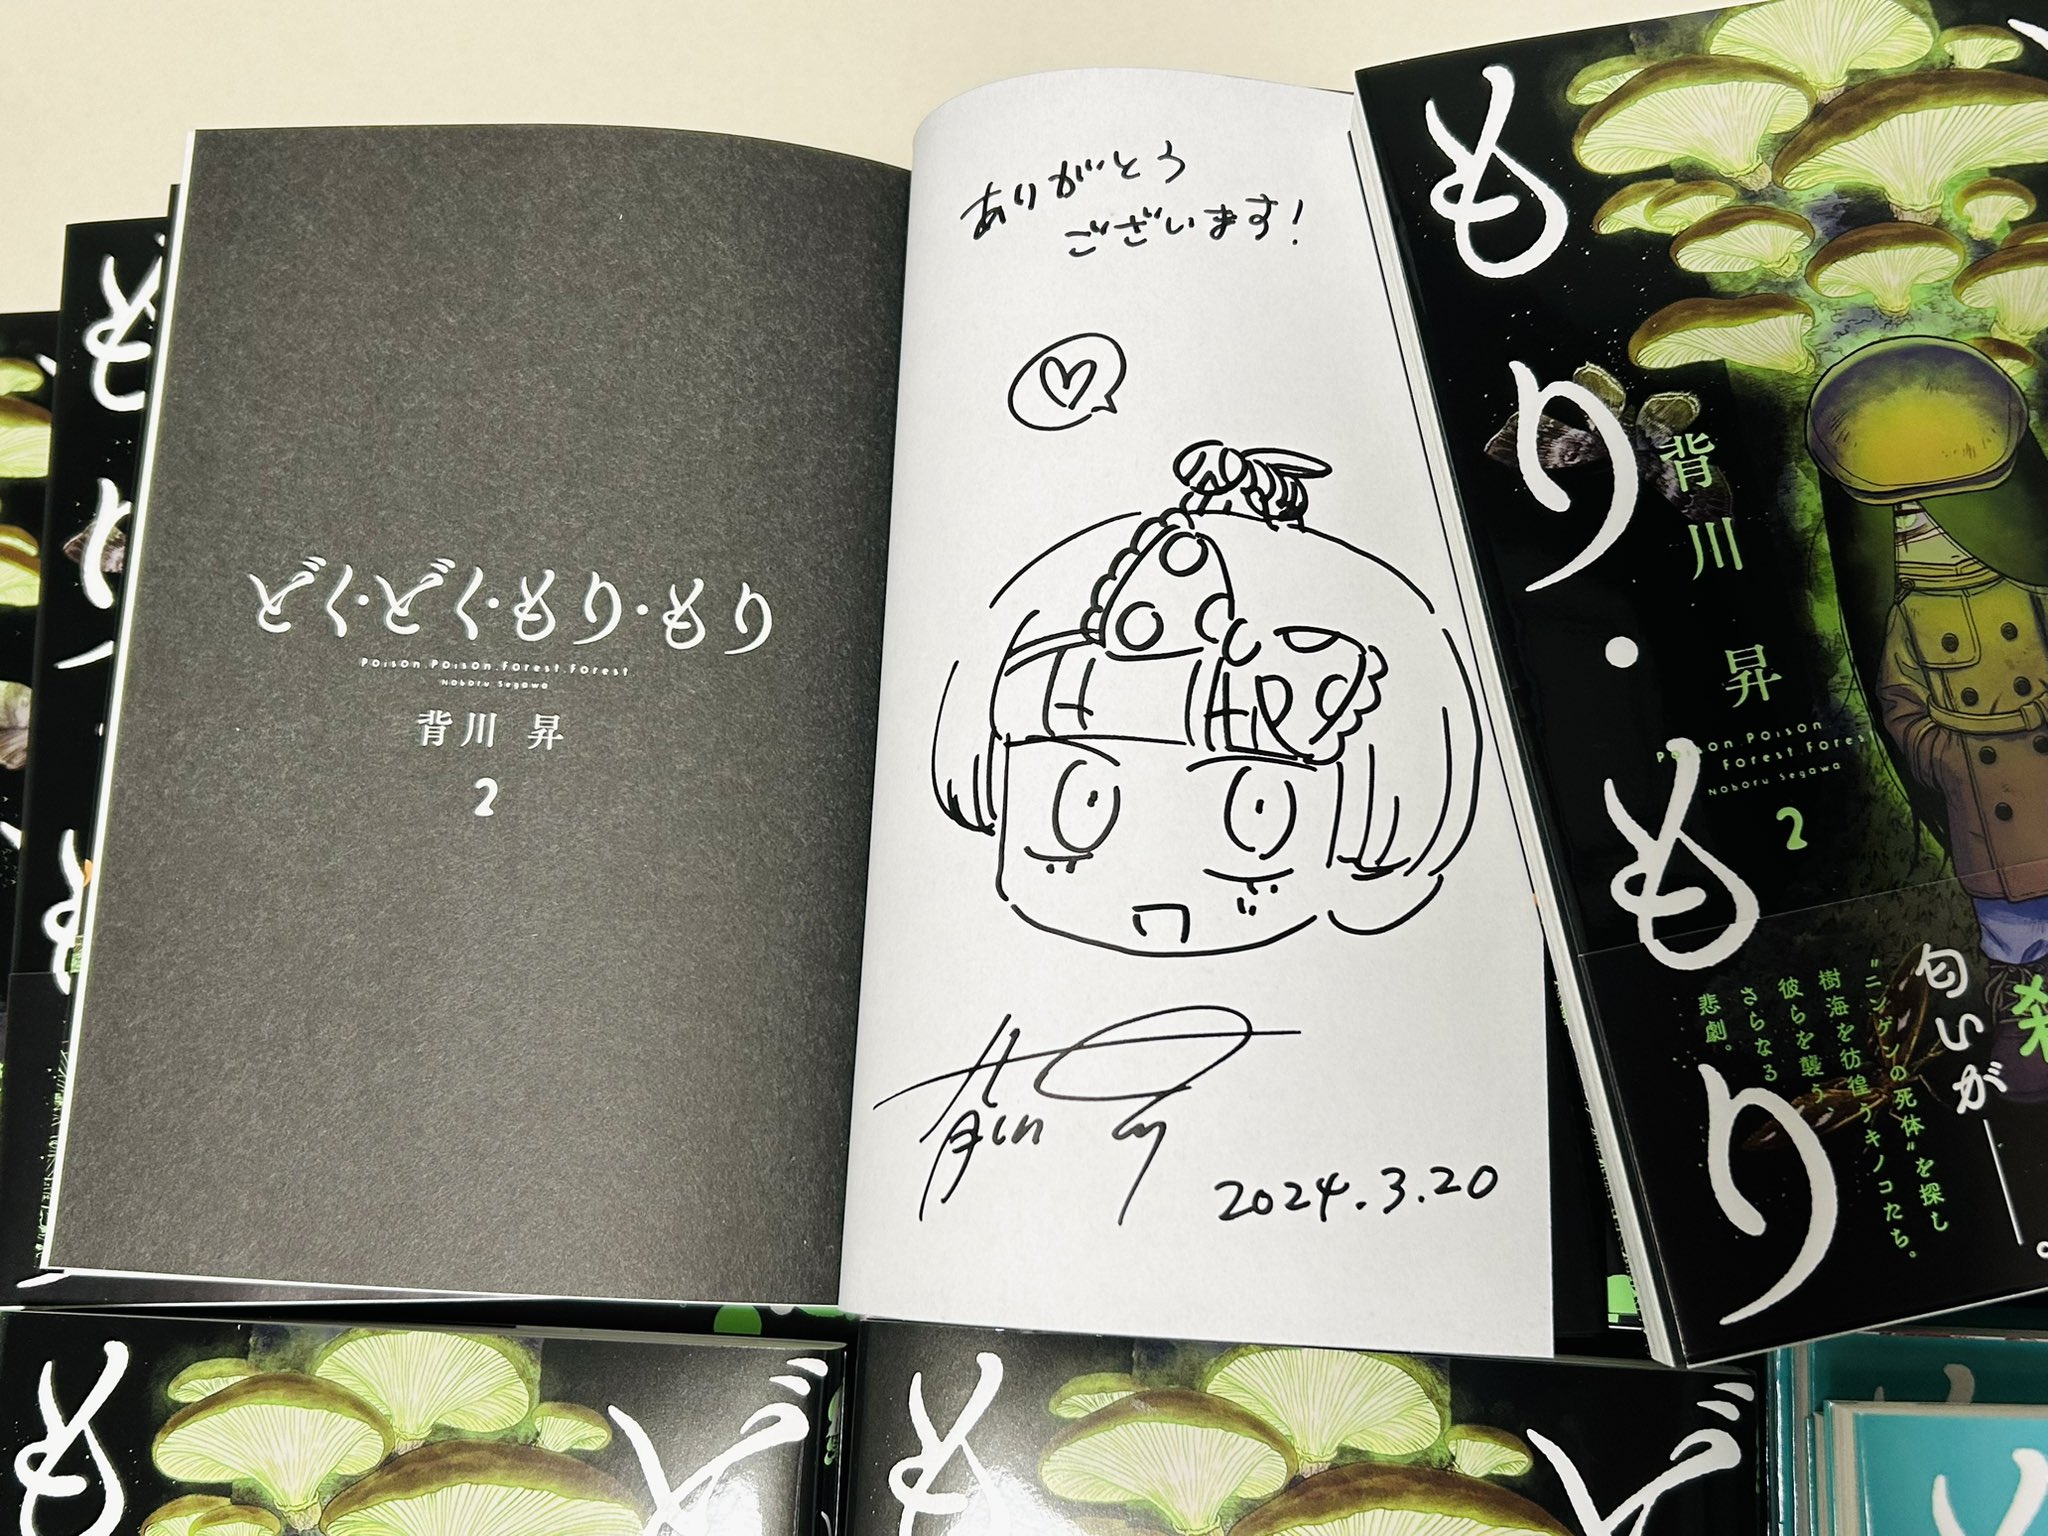 どく・どく・もり・もり
Poison.Poison.Forest.Forest
Noboru Segawa
背川 昇
2
ありがとう
ございます!
2024.3.20
もり・もり
背川 昇
Poison.Poison
Forest.Fores
Noboru Segawa
2
匂いが──。
"ニンゲンの死体"を探し
樹海を彷徨うキノコたち。
彼らを襲う
さらなる
悲劇。
ど
も
ど
も